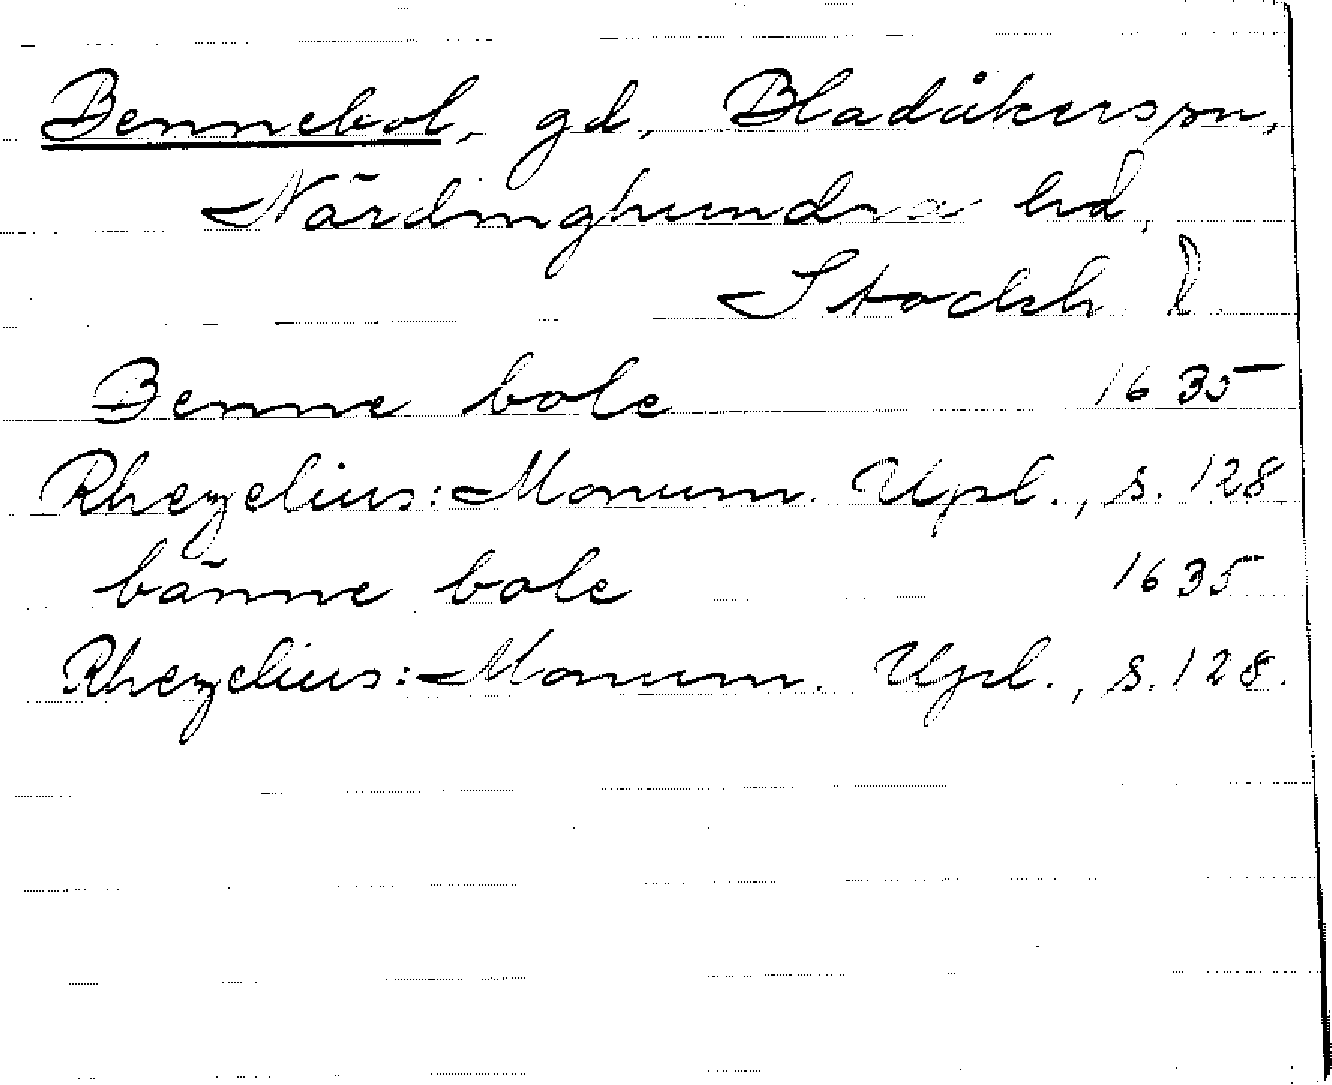 Bennebol, gd, Bladåkers sn,
Närdinghundra hd,
Stockh l.
Benne bole 1635
Rhezelius: Monum. Upl., s. 128
bänne bole 1635
Rhezelius: Monum. Upl., s. 128.